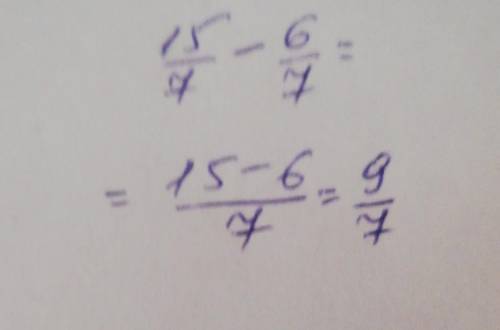 15/7 - 6/7 =
= 15-6/7 = 9/7